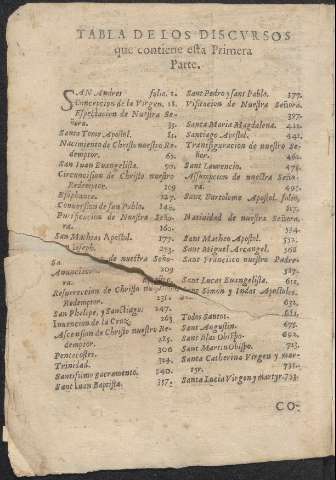 TABLA DE LOS DISCVRSOS
que contiene esta Primera
Parte.
SAN Andres folio. 1.
Concepcion de la Virgen. 18.
Espectacion de Nuestra Se-
ñora. 35.
Santo Tome Apostol. 51.
Nacimiento de Christo nuestro Re-
demptor. 65.
San Iuan Euangelista. 90.
Circuncision de Christo nuestro
Redemptor. 109
Epiphania. 127.
Conuersion de san Pablo. 146.
Purificacion de Nuestra Seño-
ra. 160.
San Mathias Apostol. 177.
Ioseph. 193.
de nuestra Seño-
Anunciacion
ra. 209
Resurreccion de Christo nuestro
Redemptor. 231.
San Phelipe, y Sanctiago. 247.
Inuencion de la Cruz. 263
Ascension de Christo nuestro Re-
demptor. 285.
Pentecostes. 306
Trinidad. 324
Santissimo sacramento. 340.
Sant Iuan Baptista. 357.
Sant Pedro y sant Pablo. 377.
Visitacion de Nuestra Señora.
397.
Santa Maria Magdalena. 422.
Santiago Apostol. 441.
Transfiguracion de nuestro Se-
ñor. 460.
Sant Laurencio. 478.
Assumpcion de nuestra Seño-
ra. 495.
Sant Bartolome Apostol. folio,
517.
Natiuidad de nuestra Señora.
534.
Sant Matheo Apostol. 552.
Sant Miguel Arcangel. 568
Sant Francisco nuestro Padre.
587.
Sant Lucas Euangelista. 612.
Sant Simon y Iudas Apostoles.
632.
Todos Santos. 653.
Sant Augustin. 675.
Sant Blas Obispo. 692.
Sant Martin Obispo. 713.
Santa Catherina Virgen y mar-
tyr. 732.
Santa Lucia Virgen y martyr. 753.
CO-